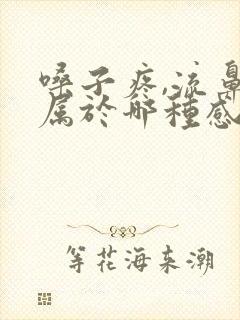 嗓子疼,流鼻
属於哪種感
等花海来潮